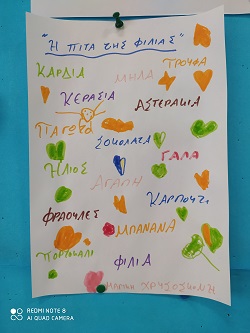 "Η ΠΙΤΑ ΤΗΣ ΦΙΛΙΑΣ"
ΚΑΡΔΙΑ
ΜΗΛΑ
ΤΡΟΥΦΑ
ΚΕΡΑΣΙΑ
ΑΣΤΕΡΑΚΙΑ
ΠΑΓΩΤΟ
ΣΟΚΟΛΑΤΑ
ΓΑΛΑ
ΗΛΙΟΣ
ΑΓΑΠΗ
ΚΑΡΠΟΥΖΙ
ΦΡΑΟΥΛΕΣ
ΜΠΑΝΑΝΑ
ΠΟΡΤΟΚΑΛΙ
ΦΙΛΙΑ
REDMI NOTE 8
AI QUAD CAMERA